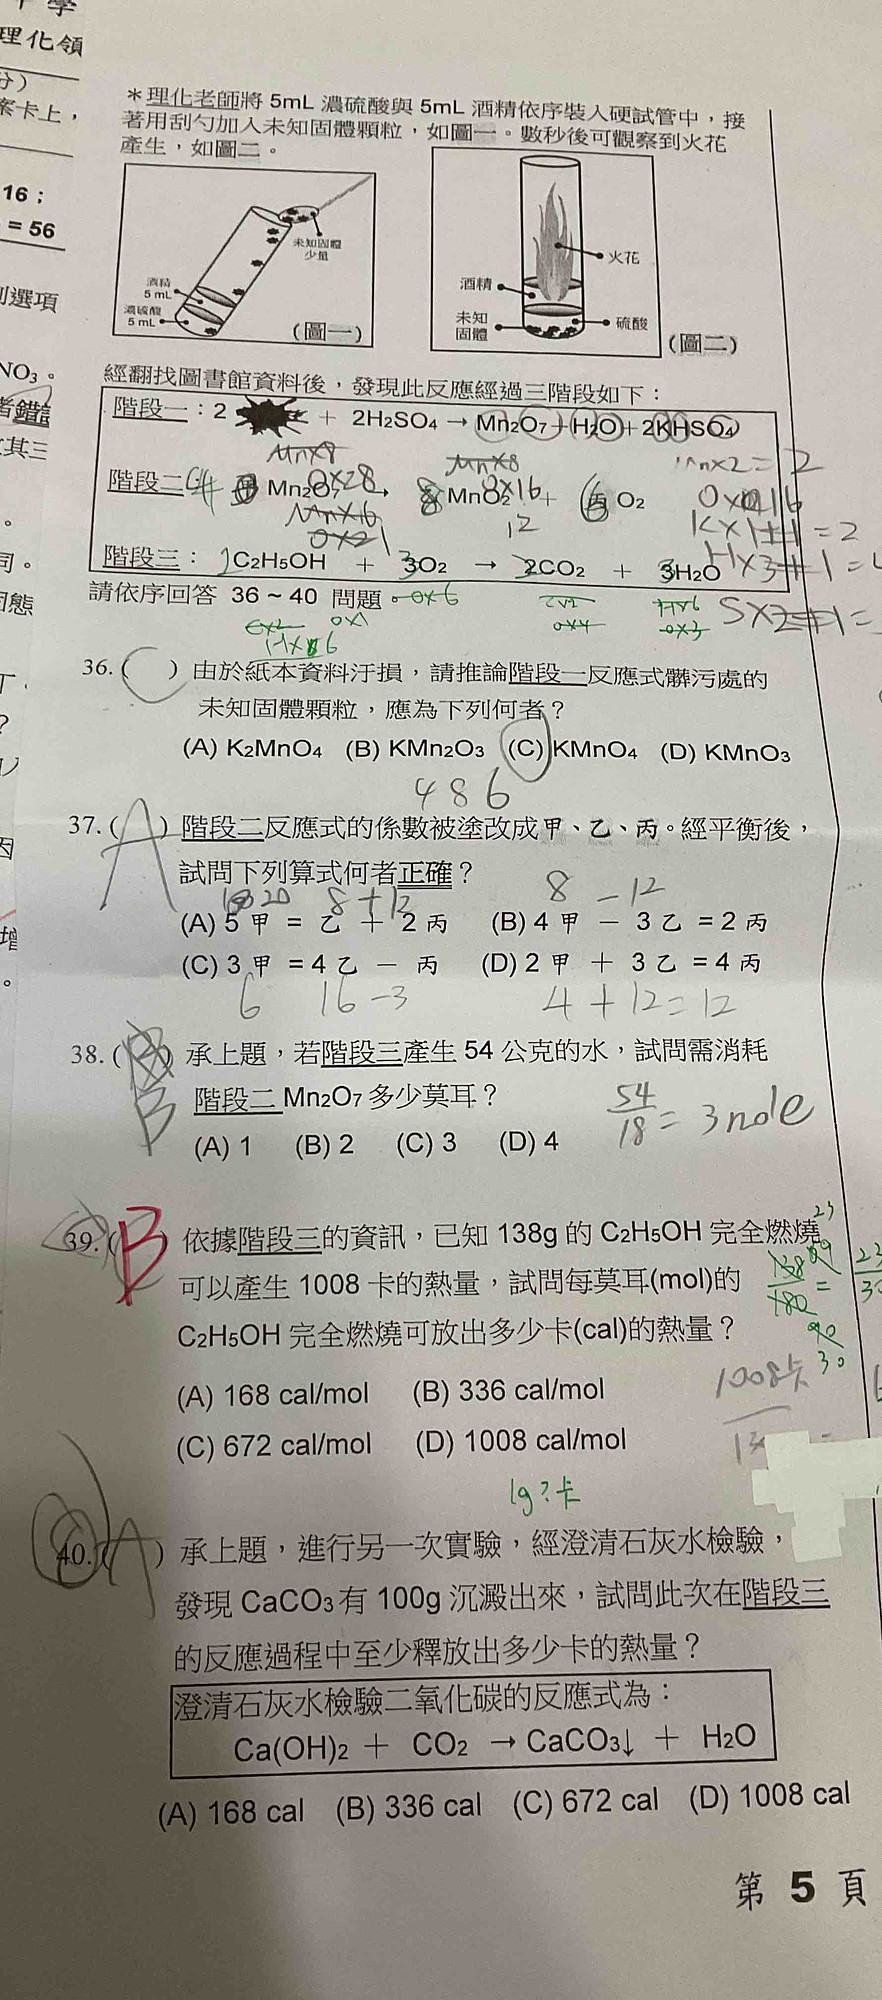 中學
理化領
分）
案卡上，
16；
= 56
NO₃。
＊理化老師將 5mL 濃硫酸與 5mL 酒精依序裝入硬試管中，接
著用刮勺加入未知固體顆粒，如圖一。數秒後可觀察到火花
產生，如圖二。
未知固體
少量
酒精
5 mL
濃硫酸
5 mL
(圖一)
火花
酒精
未知
固體
硫酸
(圖二)
經翻找圖書館資料後，發現此反應經過三階段如下：
階段一：2 + 2H₂SO₄ → Mn₂O₇ + H₂O + 2KHSO₄
階段二 4 Mn₂O₇ → 8 MnO₂ + 6 丙 O₂
階段三： 1 C₂H₅OH + 3O₂ → 2CO₂ + 3H₂O
請依序回答 36 ~ 40 問題。
36. ( ) 由於紙本資料汙損，請推論階段一反應式髒污處的
未知固體顆粒，應為下列何者？
(A) K₂MnO₄ (B) KMn₂O₃ (C) KMnO₄ (D) KMnO₃
4 8 6
37. ( A ) 階段二反應式的係數被塗改成甲、乙、丙。經平衡後，
試問下列算式何者正確？
20 8 + 12 8 - 12
(A) 5 甲 = 乙 + 2 丙 (B) 4 甲 － 3 乙 = 2 丙
(C) 3 甲 = 4 乙 － 丙 (D) 2 甲 + 3 乙 = 4 丙
6 16 - 3 4 + 12 = 12
38. ( B ) 承上題，若階段三產生 54 公克的水，試問需消耗
階段二 Mn₂O₇ 多少莫耳？
54/18 = 3 mole
(A) 1 (B) 2 (C) 3 (D) 4
39. ( B 依據階段三的資訊，已知 138g 的 C₂H₅OH 完全燃燒
可以產生 1008 卡的熱量，試問每莫耳(mol)的
C₂H₅OH 完全燃燒可放出多少卡(cal)的熱量？
1008卡
(A) 168 cal/mol (B) 336 cal/mol
(C) 672 cal/mol (D) 1008 cal/mol
1g ? 卡
40. ( A ) 承上題，進行另一次實驗，經澄清石灰水檢驗，
發現 CaCO₃ 有 100g 沉澱出來，試問此次在階段三
的反應過程中至少釋放出多少卡的熱量？
澄清石灰水檢驗二氧化碳的反應式為：
Ca(OH)₂ + CO₂ → CaCO₃↓ + H₂O
(A) 168 cal (B) 336 cal (C) 672 cal (D) 1008 cal
第 5 頁